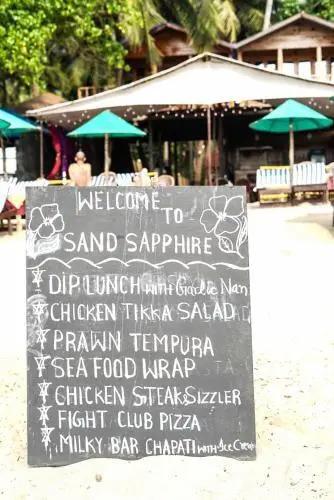 WELCOME
TO
SAND SAPPHIRE
DIP LUNCH WITH Garlic Nan
CHICKEN TIKKA SALAD
PRAWN TEMPURA
SEA FOOD WRAP
CHICKEN STEAK SIZZLER
FIGHT CLUB PIZZA
MILKY BAR CHAPATI WITH Ice Crem